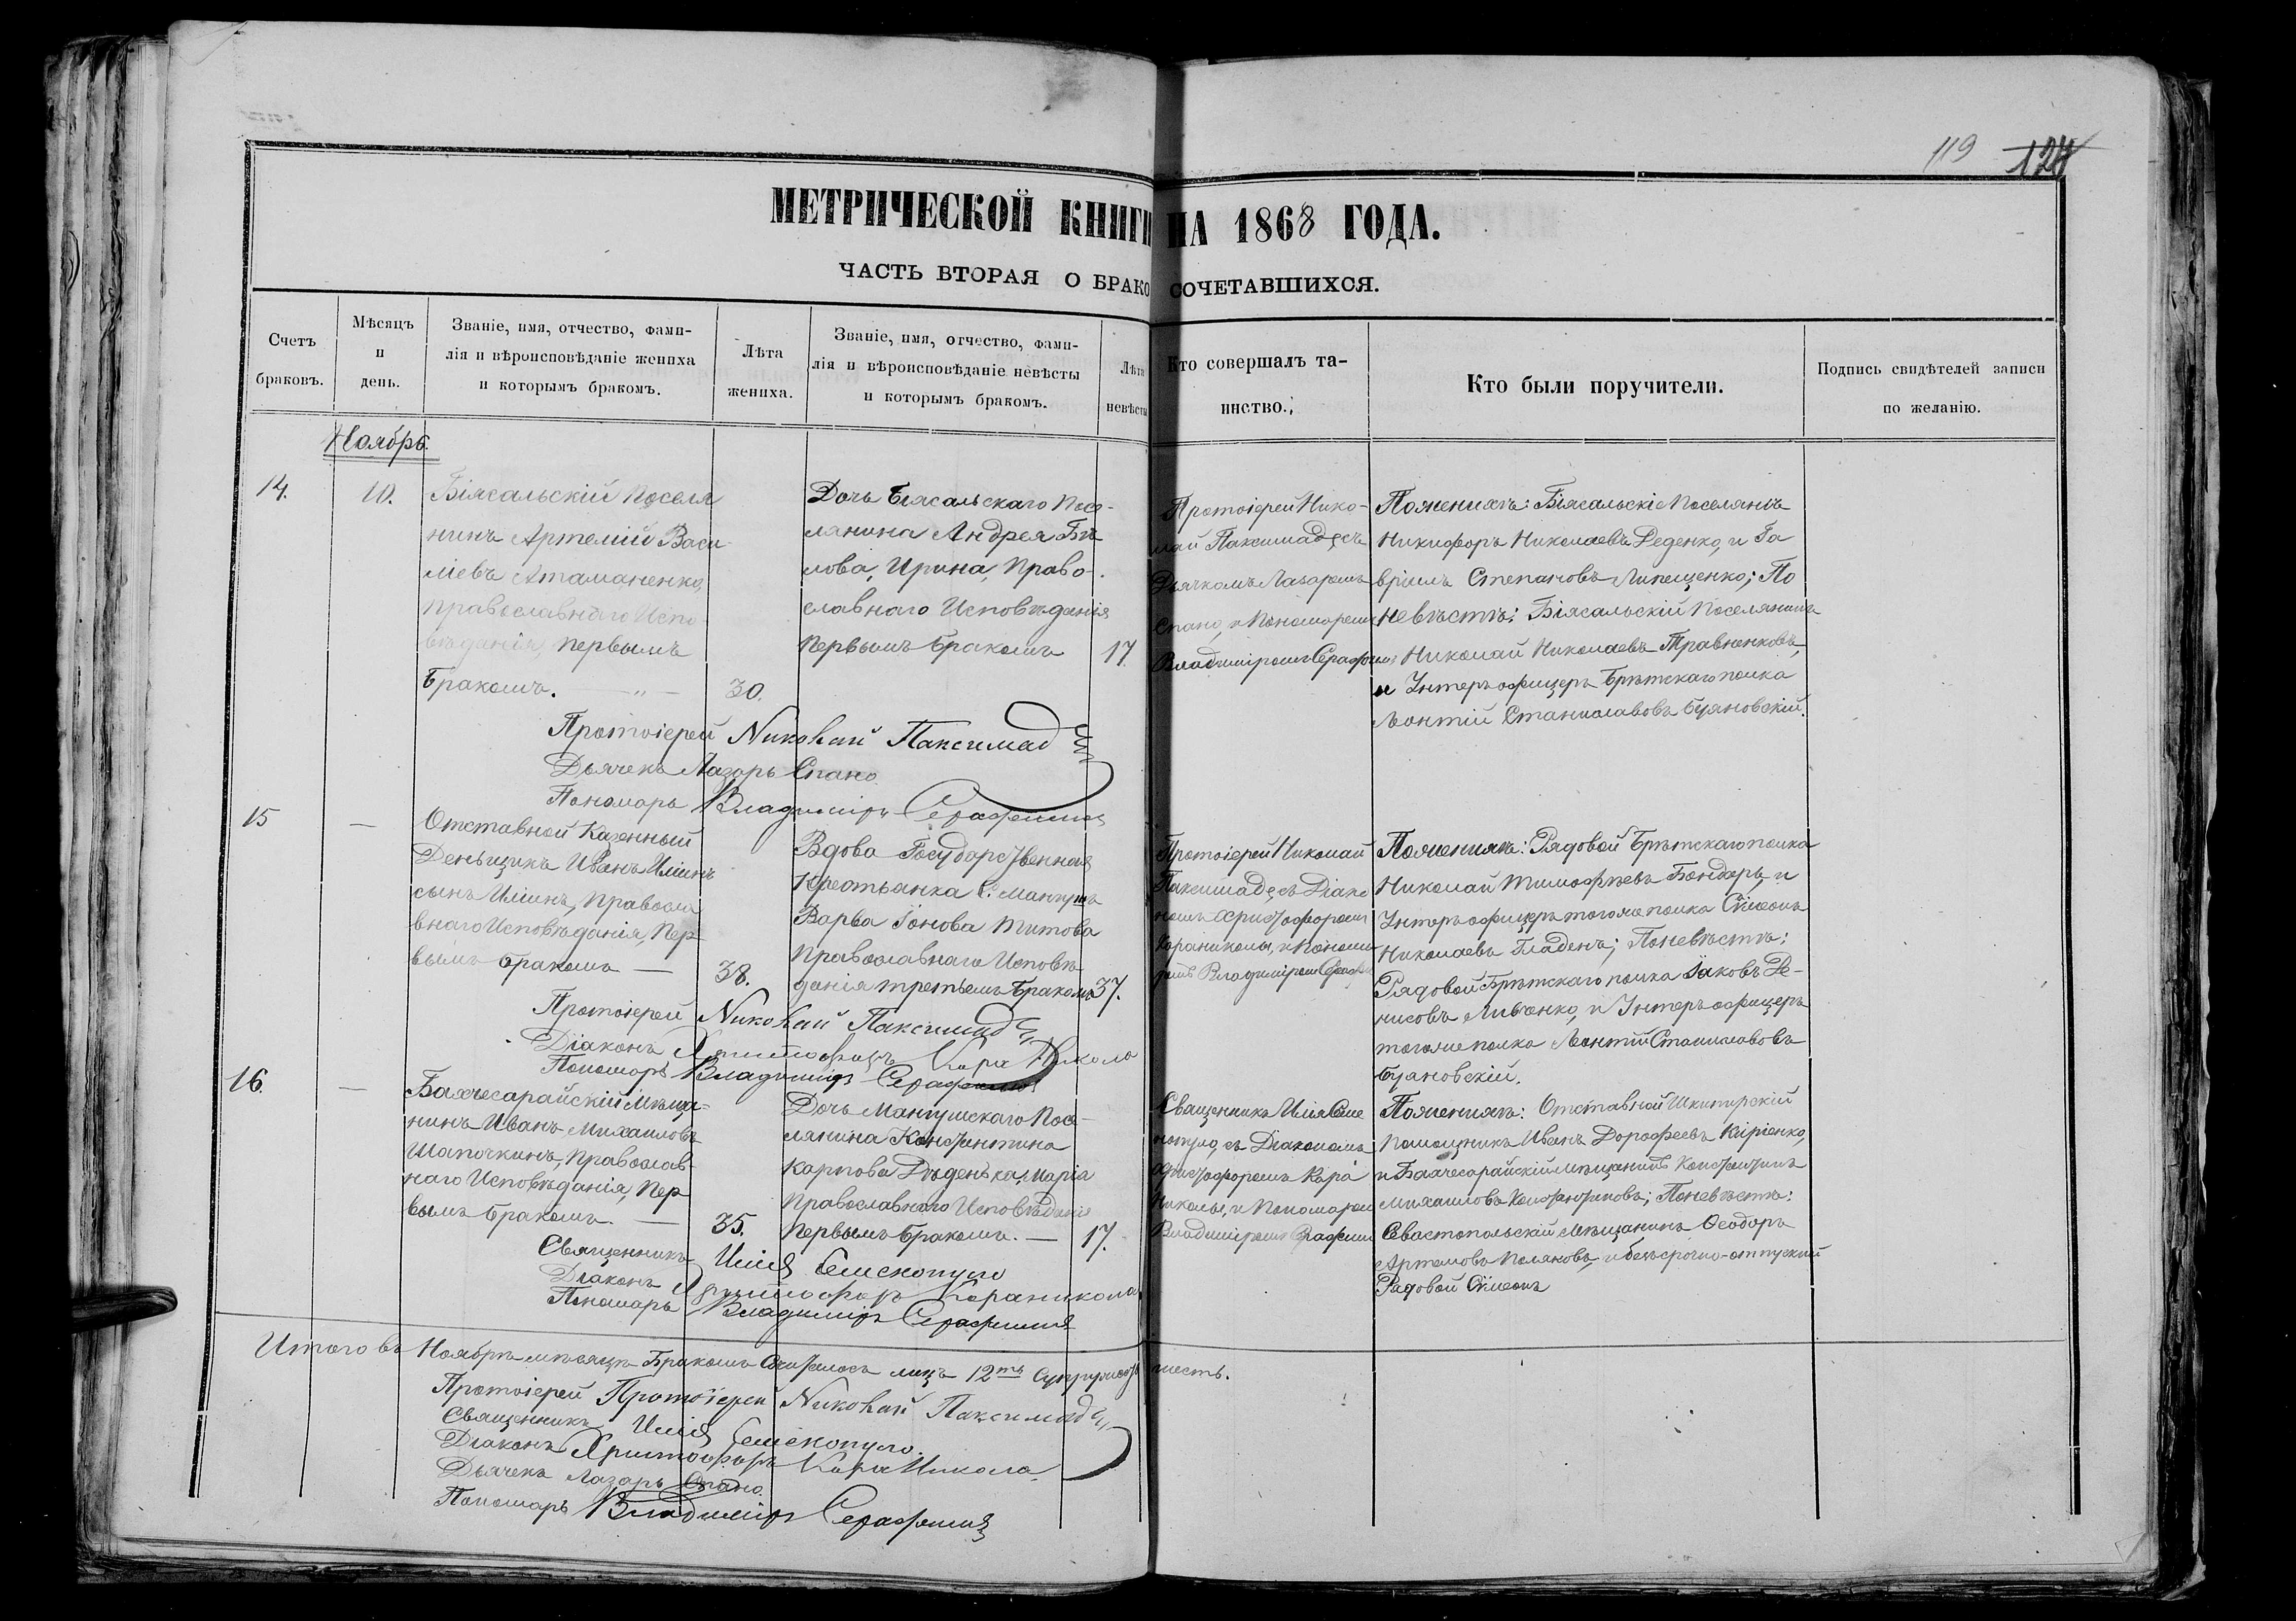 119 124
МЕТРИЧЕСКОЙ КНИГИ НА 1868 ГОДА.
ЧАСТЬ ВТОРАЯ О БРАКОСОЧЕТАВШИХСЯ.
Счетъ браковъ.
Мѣсяцъ и день.
Званіе, имя, отчество, фами-
лія и вѣроисповѣданіе жениха
и которымъ бракомъ.
Лѣта
жениха.
Званіе, имя, отчество, фами-
лія и вѣроисповѣданіе невѣсты
и которымъ бракомъ.
Лѣта
невѣсты
Кто совершалъ та-
инство.
Кто были поручители.
Подпись свидѣтелей записи
по желанію.
Ноябрь.
14.
10.
Біясальскій Поселя
нинъ Артемій Васи-
ліевъ Атаманенко,
Православнаго Испо-
вѣданія, первымъ
Бракомъ.
30.
Дочь Біясальскаго Посе-
лянина Андрея Бѣ
лова, Ирина, Право-
славнаго Исповѣданія
Первымъ Бракомъ
17.
Протоіерей Нико-
лай Паксимадъ съ
Дьячкомъ Лазаремъ
Спано, и Пономаремъ
Владиміромъ
По женихѣ: Біясальскіе Поселянѣ
Никифоръ Николаевъ Деденко, и Га
вріилъ Степановъ Липещенко; По
невѣстѣ: Біясальскій Поселянинъ
Николай Николаевъ Травненковъ,
и Унтеръ офицеръ Брѣтскаго полка
Леонтій Станиславовъ Буяновскій.
Протоіерей Николай Паксимад
Дьячекъ Лазарь Спано
Пономарь Владиміръ
15
—
Отставной Казенный
Деньщикъ Иванъ Ильинъ
сынъ Ильинъ, Правосла
внаго Исповѣданія, Пер
вымъ Бракомъ —
38.
Вдова Государственная
Крестьянка С. Мангушъ
Варва Іонова Титова
Православнаго Исповѣ
данія третьемъ Бракомъ
37.
Протоіерей Николай
Паксимадъ, съ Діако
номъ Христофоромъ
Караниколы, и Понома
ремъ Владиміромъ
По женихѣ: Рядовой Брѣтскаго полка
Николай Тимофѣевъ Бондарь, и
Унтеръ офицеръ того же полка Сѵмеонъ
Николаевъ Гладенъ; По невѣстѣ:
Рядовой Брѣтскаго полка Іаковъ Де-
нисовъ Ливченко, и Унтеръ офицеръ
того же полка Леонтій Станиславовъ
Буяновскій.
Протоіерей Николай Паксимад
Діаконъ Христофоръ Кара Никола
Пономарь Владиміръ
16.
—
Бахчесарайскій Мѣща-
нинъ Иванъ Михаиловъ
Шапочкинъ, Православ-
наго Исповѣданія, Пер
вымъ Бракомъ. —
35.
Дочь Мангушскаго Посе-
лянина Константина
Карпова Дѣденька, Марія
Православнаго Исповѣданія
Первымъ Бракомъ. —
17.
Священникъ Илія
съ Діакономъ
Христофоромъ Кара
Николы, и Пономарем
Владиміромъ
По женихѣ: Отставной Шкиперскій
помощникъ Иванъ Дорофеевъ Киріенко,
и Бахчесарайскій мѣщанинъ Константинъ
Михаиловъ Константиновъ; По невѣстѣ:
Севастопольскій Мѣщанинъ Ѳеодоръ
Артемовъ Поляновъ, и безсрочно-отпускный
Рядовой Сѵмеонъ
Священникъ Илія
Діаконъ Христофоръ Караникола
Пономарь Владиміръ
Итого въ Ноябрѣ мѣсяцѣ Бракомъ Сочеталось лицъ 12ть Супружествъ шесть.
Протоіерей Протоіерей Николай Паксимад
Священникъ Илія
Діаконъ Христофоръ Кара Никола
Дьячекъ Лазарь Спано.
Пономарь Владиміръ